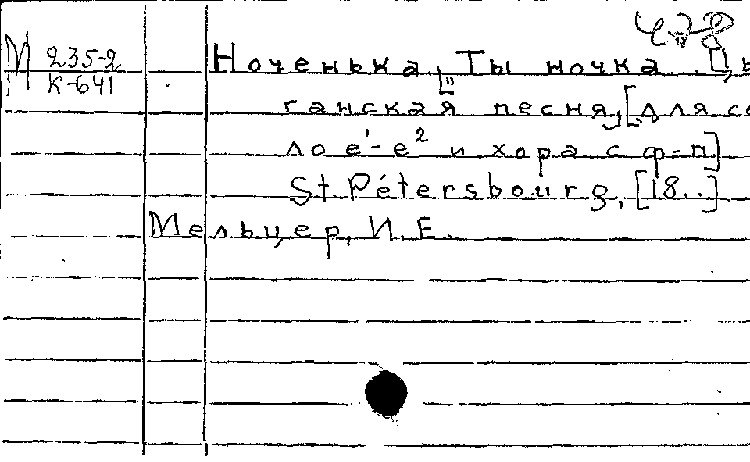 478
М 235-2
К-641
Ноченька, Ты ночка. Цы
ганская песня, [для со
ло e¹-e² и хора с ф-п]
St. Pétersbourg, [18..]
Мельцер, И.Е.